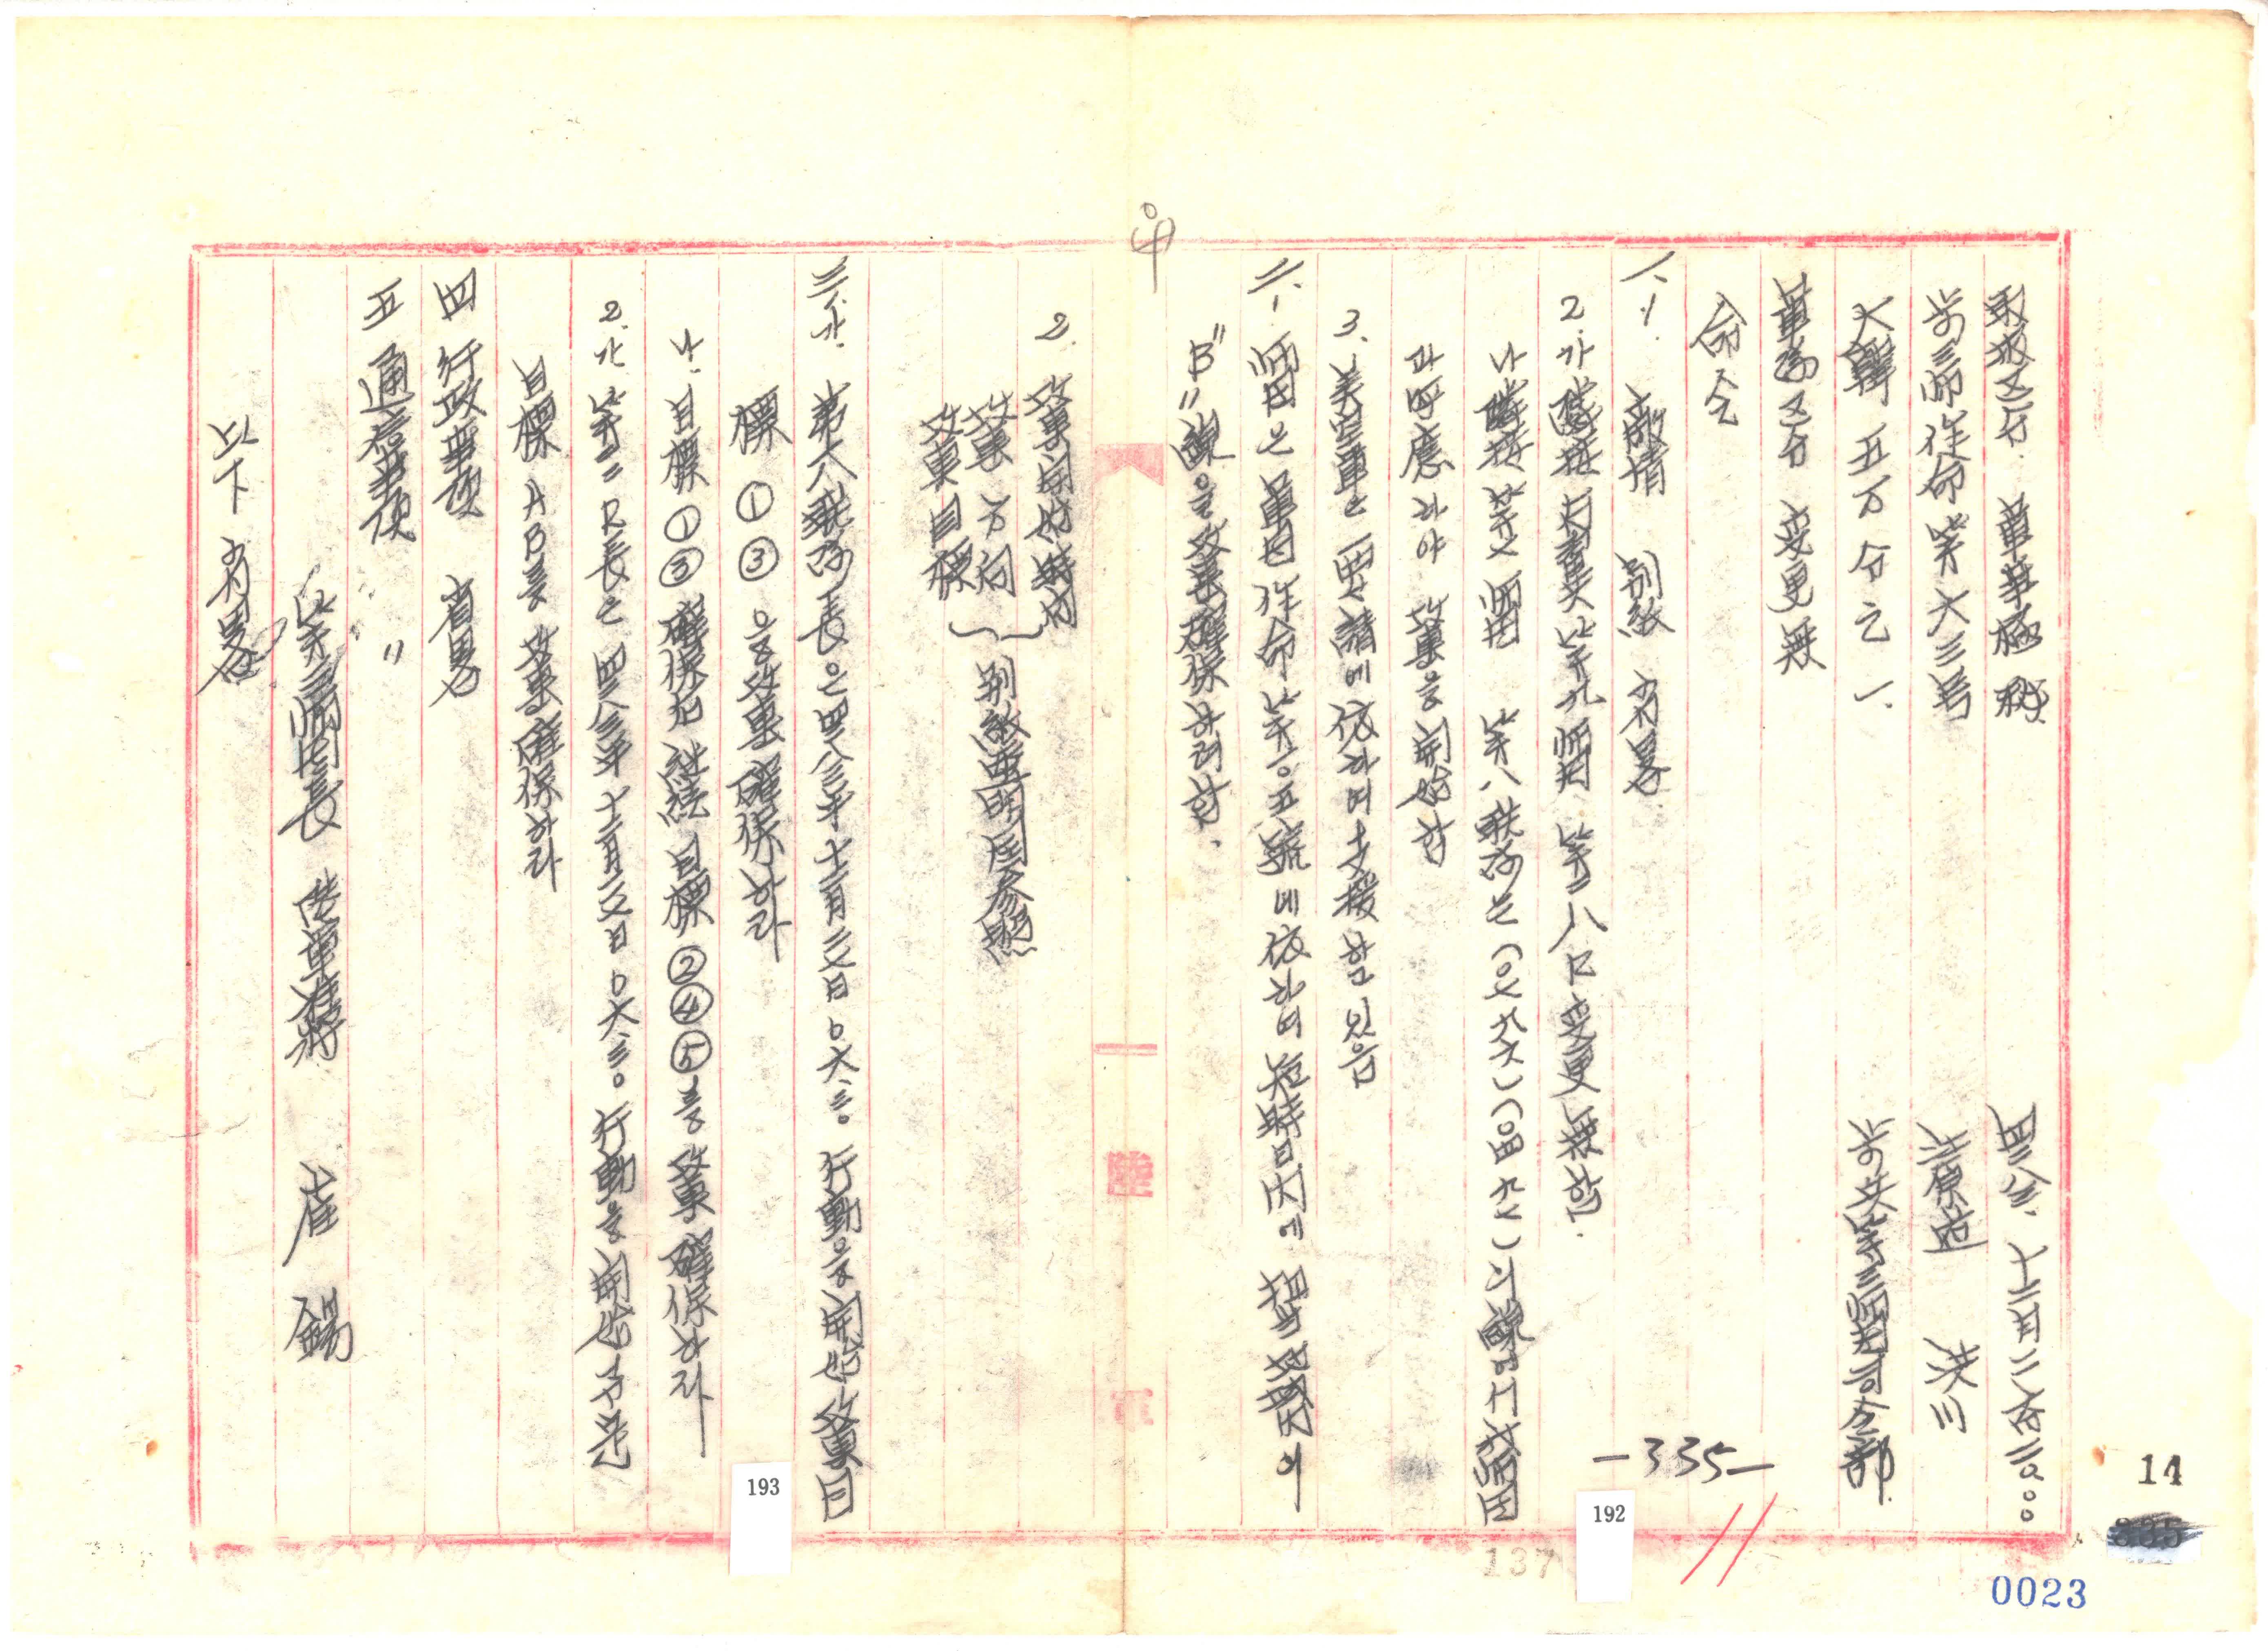 軍事極秘
四二八三. 十二月二六日 二〇:〇〇
步三師作命 第六三号
江原道 洪川
大韓 五万分之一.
步兵第三師団司令部
軍隊区分 変更無
命令
一. 1. 敵情 別紙 省畧
2. 가 隣接 部隊 第九師団 第二八R 変更 無함.
나 隣接 第七師団 第八聯隊은 (〇七九六) (〇四九七)의 線에서 我師団
과 呼應하야 攻擊을 開始함
3. 美空軍은 要請에 依하여 支援함이 있음
二. 1. 師団은 軍団作命 第一〇五號에 依하여 短時日內에 担当 地域內의
"B"線을 攻擊確保하려함.
2. 攻擊開始時日
攻擊方向
攻擊目標
別紙要図参照
三. 1. 가. 第一八聯隊長은 四二八三年十二月二七日 〇六:三〇 行動을 開始 攻擊目
標 ① ③ 을 攻擊確保하라
나. 目標 ① ③ 確保后 継続 目標 ② ④ ⑤ 를 攻擊 確保하라
2. 가. 第二二R長은 四二八三年十二月二七日 〇六:三〇 行動을 開始
目標 A B를 攻擊確保하라
四 行政事項 省畧
五 通信事項 〃
第三師団長 陸軍准將 崔 錫
以下 省畧
- 335 -
192
193
137
14
335
0023